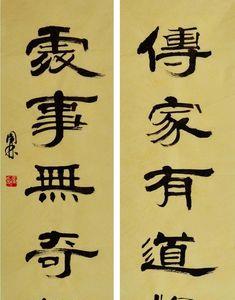 傳家有道
處事無奇